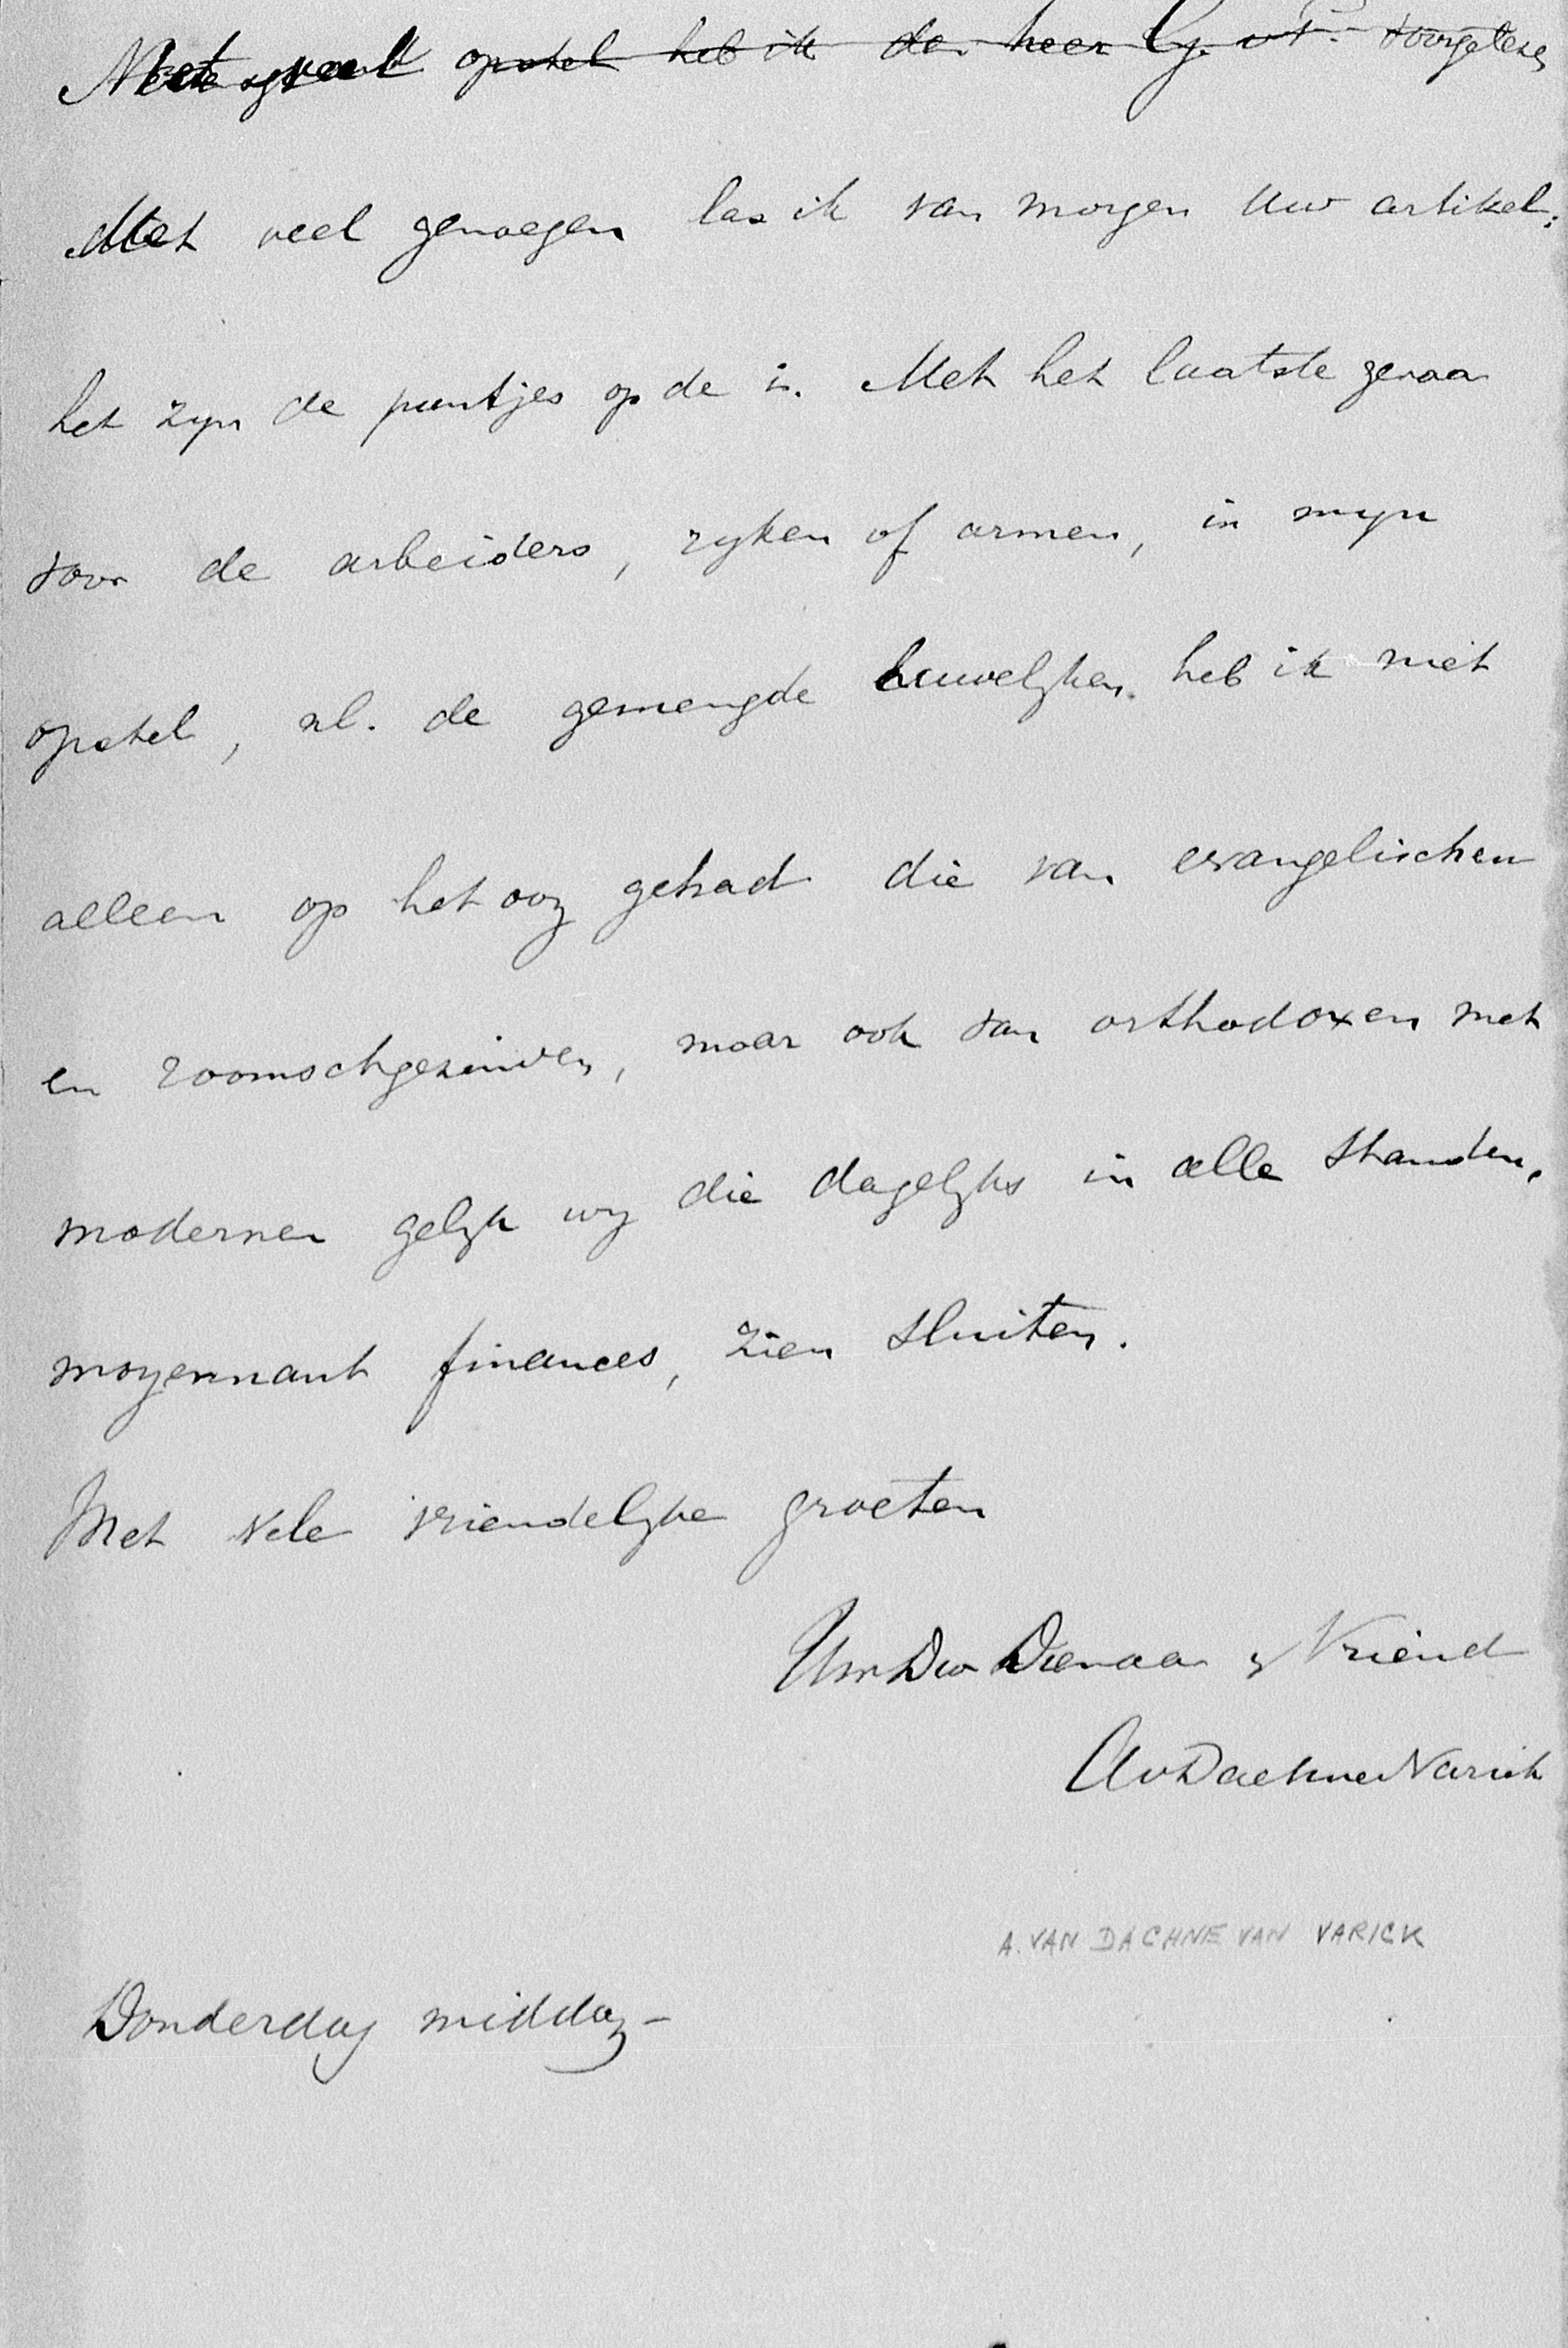 opstel heb ik den heer G. v. P. voorgelezen
Met veel genoegen las ik van morgen Uw artikel;
het zyn de puntjes op de i's. Met het laatste gevaar
voor de arbeiders, ryken of armen, in myn
opstel, nl. de gemengde huwelyken. heb ik niet
alleen op het oog gehad die van evangelischen
en roomschgezinden, maar ook van orthodoxen met
modernen gelyk wy die dagelyks in alle standen,
moyennant finances, zien sluiten.
Met vele vriendelyke groeten
Uw Dw Dienaar & Vriend
AvDachneVarick
A. VAN DACHNE VAN VARICK
Donderdag middag –